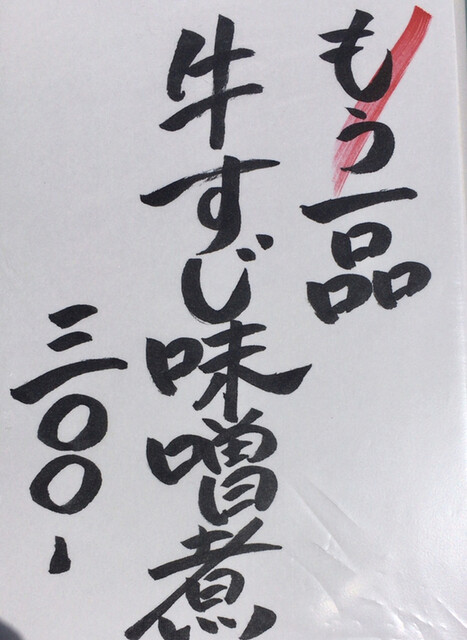 もう一品
牛すじ味噌煮
三〇〇-